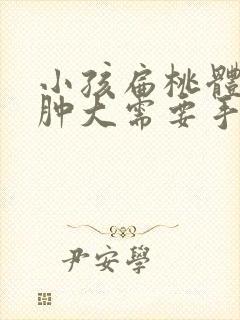 小孩扁桃體
肿大需要手
尹安學